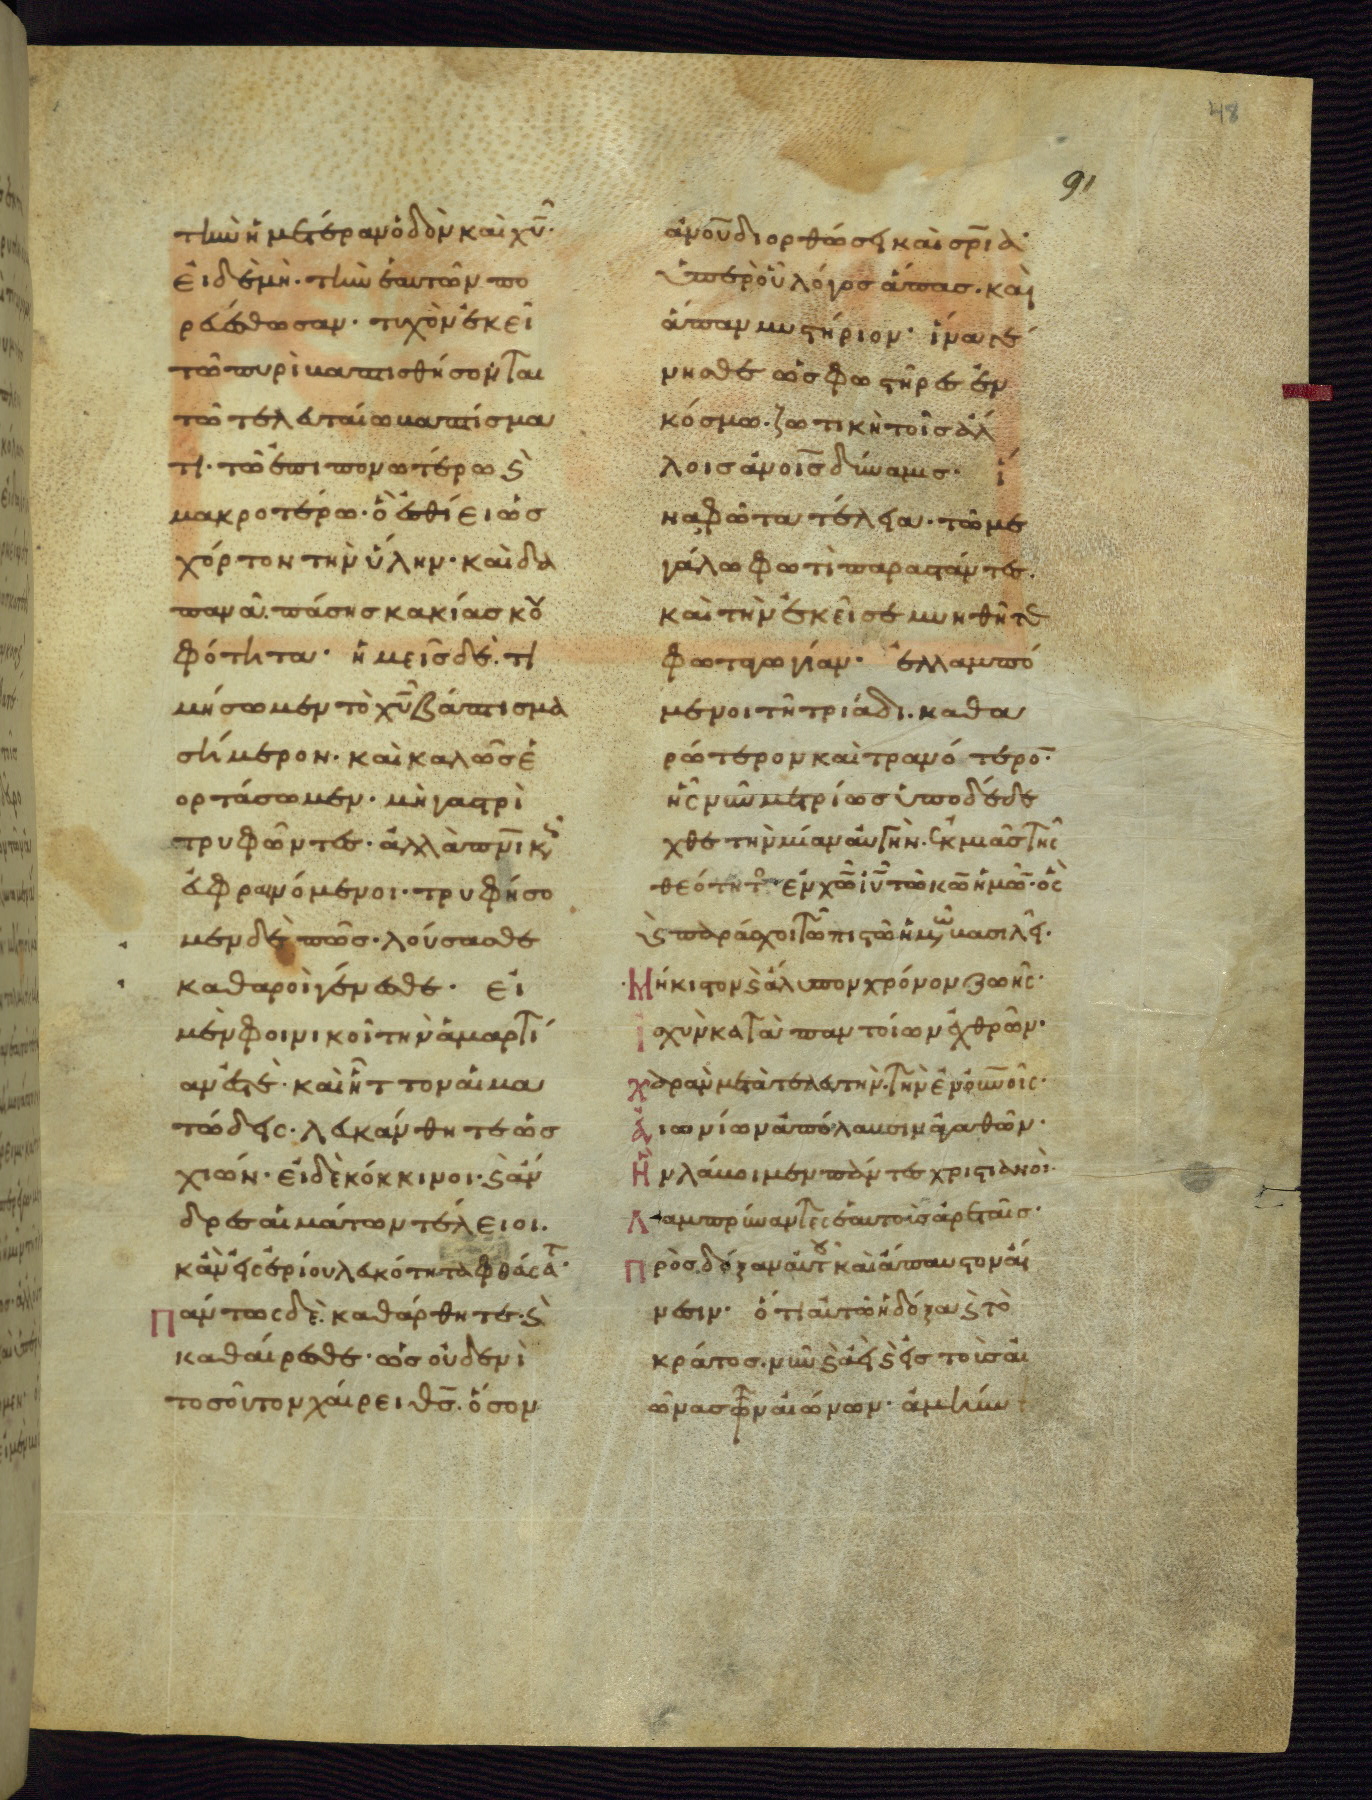 48
91
τὴν ἡμετέραν ὁδὸν καὶ χῦ·
εἰ δὲ μὴ· τὴν ἑαυτῶν πο
ρευέσθωσαν· τυχὸν ἐκεῖ
τῶ πυρὶ βαπτισθήσονται
τῶ τελευταίω βαπτίσμα
τι· τῶ ἐπιπονωτέρω ϗ
μακροτέρω· ὃ ἐσθίει ὡσ
χόρτον τὴν ὕλην· καὶ δα
πανᾶ πάσησ κακίασ κου
φότητα· ἡμεῖσ δὲ τι
μήσωμεν τὸ χῦ βάπτισμα
σήμερον· καὶ καλῶσ ἑ
ορτάσωμεν· μὴ γαστρὶ
τρυφῶντεσ· ἀλλὰ πνικῶσ
εὐφραινόμενοι· τρυφήσο
μεν δὲ πῶσ· λούσασθε
καθαροὶ γένεσθε· εἰ
μὲν φοινικοῖ τὴν ἁμαρτί
αν ἐστὲ· καὶ ἧττον αἱμα
τώδεις· λευκάνθητε ὡσ
χιών· εἰ δὲ κόκκινοι· ϗ ἄν
δρεσ αἱμάτων τέλειοι·
κἂν εἰς ἐρίου λευκότητα φθάσατε·
Πάντως δὲ καθάρθητε· ϗ
καθαίρεσθε· ὡσ οὐδενὶ
τοσοῦτον χαίρει θσ· ὅσον
ἀνου διορθώσει καὶ σρία·
ὑπὲρ οὗ λόγοσ ἅπασ· καὶ
ἅπαν μυστήριον· ἵνα γέ
νησθε ὡσ φωστῆρεσ ἐν
κόσμω· ζωτικὴ τοῖσ ἄλ
λοισ ἀνοισ δύναμισ· ἵ
να φῶτα τέλεια· τῶ με
γάλω φωτὶ παραστάντεσ·
καὶ τὴν ἐκεῖσε μυηθῆτε
φωταγωγίαν· ἐλλαμπό
μενοι τῆ τριάδι· καθα
ρώτερον καὶ τρανότερον·
ἧς νῦν μετρίωσ ὑποδέδε
χθε τὴν μίαν αὐγὴν· ἐκ μιᾶς τῆς
θεότητος· ἐν χῶ ιῦ τῶ κω ἡμῶν· ὃς
ϗ παράσχοι τῶ πιστῶ ἡμῶν βασιλεῖ·
Μήκιστον ϗ ἄλυπον χρόνον ζωῆς·
ἰσχὺν κατὰ παντοίων ἐχθρῶν·
χαρὰν μετὰ τελευτὴν· τὴν ἐν οὐνοῖς·
Αἰωνίων ἀπόλαυσιν ἀγαθῶν·
Ἣν λάβοιμεν πάντεσ χριστιανοὶ·
Λαμπρύναντες ἑαυτοὺσ ἀρεταῖσ·
Πρὸσ δόξαν αὐτοῦ καὶ ἄπαυστον αἴ
νεσιν· ὅτι αὐτῶ ἡ δόξα ϗ τὸ
κράτοσ· νῦν ϗ ἀεὶ ϗ εἰσ τοὺσ αἰ
ῶνασ τῶν αἰώνων· ἀμήν